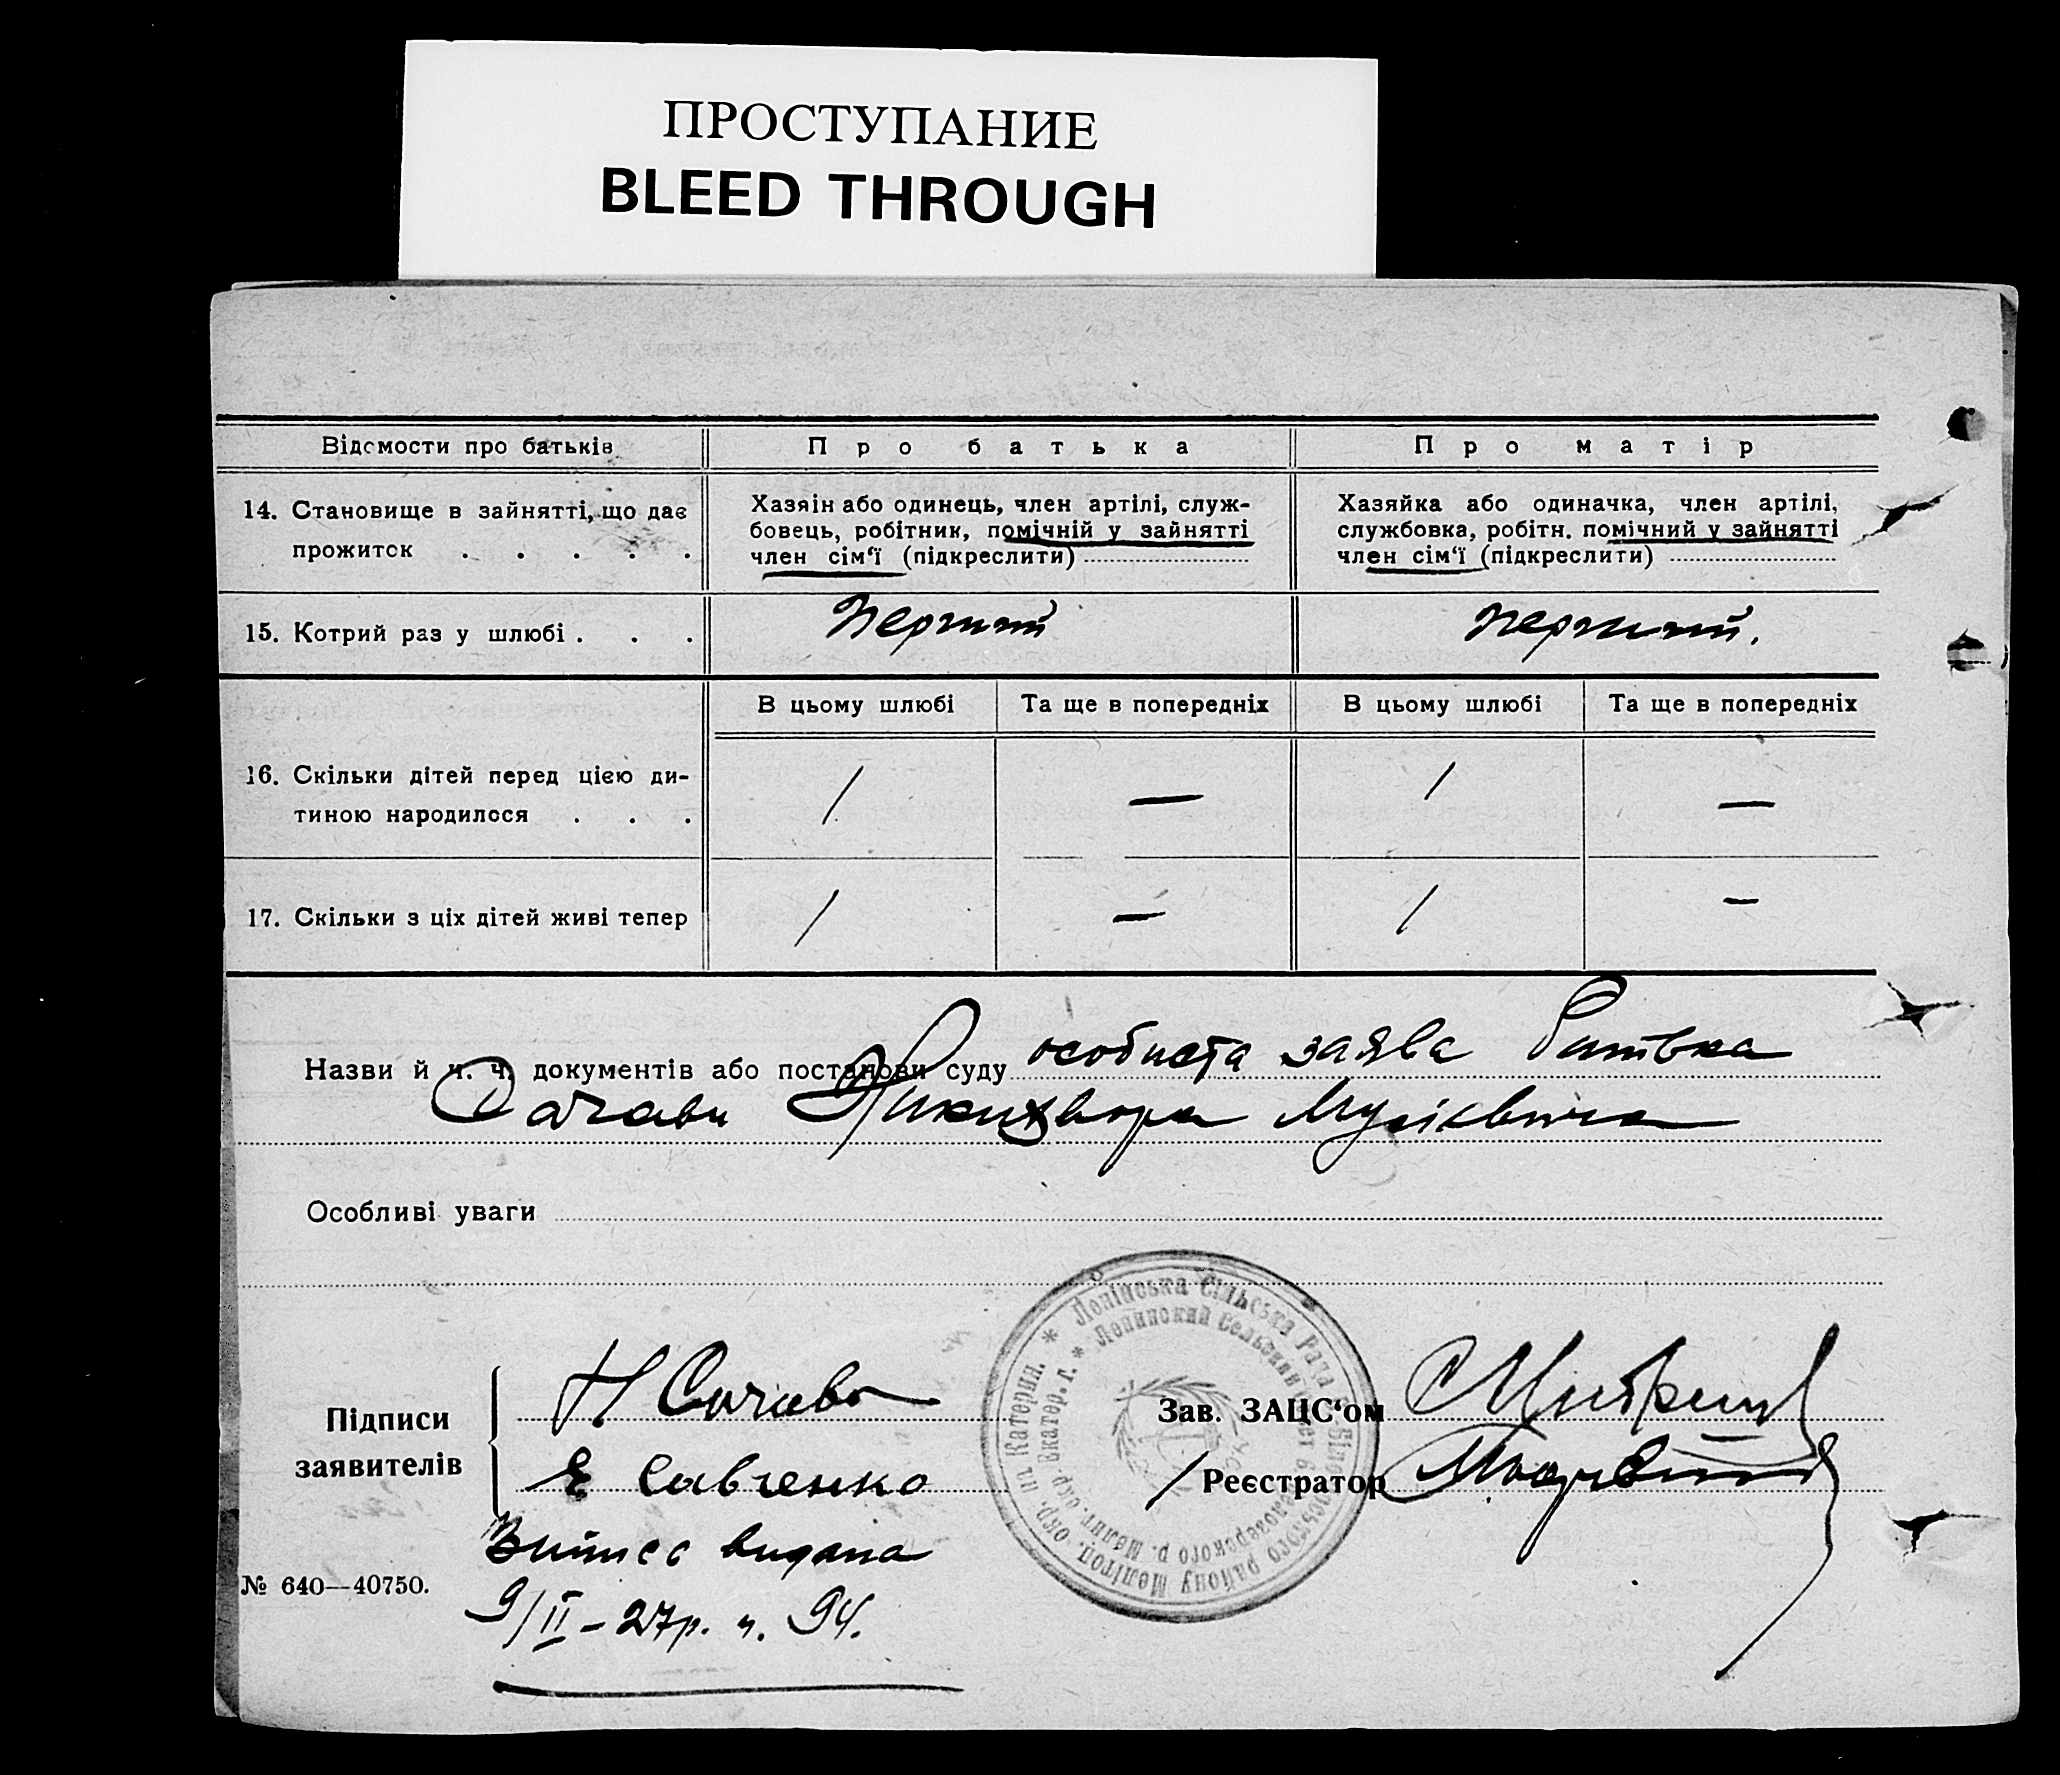 ПРОСТУПАНИЕ
BLEED THROUGH
Відомости про батьків
Про батька
Про матір
14. Становище в зайнятті, що дає
прожиток . . . . .
Хазяін або одинець, член артілі, служ-
бовець, робітник, помічній у зайнятті
член сім‘ї (підкреслити)
Хазяйка або одиначка, член артілі,
службовка, робітн. помічний у зайнятті
член сім‘ї (підкреслити)
15. Котрий раз у шлюбі . . .
Перший
перший.
В цьому шлюбі
Та ще в попередніх
В цьому шлюбі
Та ще в попередніх
16. Скільки дітей перед цією ди-
тиною народилося . . .
1 — 1 —
17. Скільки з ціх дітей живі тепер
1 — 1 —
Назви й ч. ч. документів або постанови суду особиста заява батька
Особливі уваги
Підписи
заявителів
Н Сичова
Е Савченко
Зав. ЗАЦС‘ом
Реєстратор
* Ленінська Сільська Рада
* Ленинский Сельский
району Мелітоп. окр. на Катерин.
Белозерского р. Мелит. окр. Екатер. г.
Витяг видана
9/II – 27р. ч. 94.
№ 640—40750.